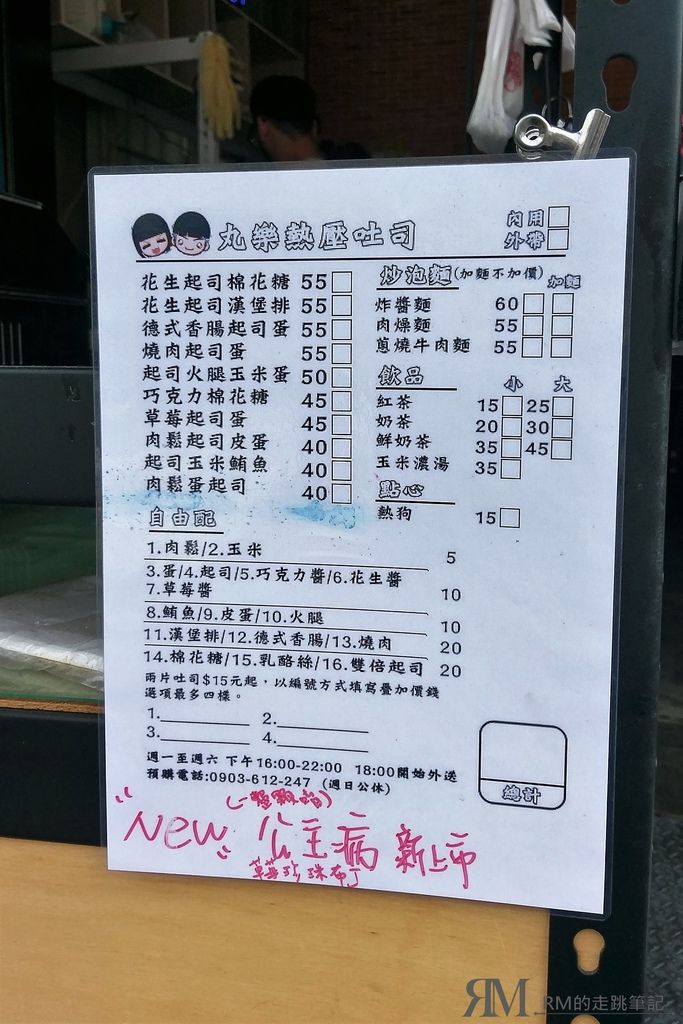 丸樂熱壓吐司
內用
外帶
花生起司棉花糖 55
花生起司漢堡排 55
德式香腸起司蛋 55
燒肉起司蛋 55
起司火腿玉米蛋 50
巧克力棉花糖 45
草莓起司蛋 45
肉鬆起司皮蛋 40
起司玉米鮪魚 40
肉鬆蛋起司 40
炒泡麵(加麵不加價) 加麵
炸醬麵 60
肉燥麵 55
蔥燒牛肉麵 55
飲品 小 大
紅茶 15 25
奶茶 20 30
鮮奶茶 35 45
玉米濃湯 35
點心
熱狗 15
自由配
1.肉鬆/2.玉米 5
3.蛋/4.起司/5.巧克力醬/6.花生醬
7.草莓醬 10
8.鮪魚/9.皮蛋/10.火腿 10
11.漢堡排/12.德式香腸/13.燒肉 20
14.棉花糖/15.乳酪絲/16.雙倍起司 20
兩片吐司$15元起，以編號方式填寫疊加價錢
選項最多四樣。
1. 2.
3. 4.
週一至週六 下午16:00-22:00 18:00開始外送
預購電話:0903-612-247 (週日公休)
總計
"New" 公主病 新上市
草莓珍珠布丁
RM RM的走跳筆記